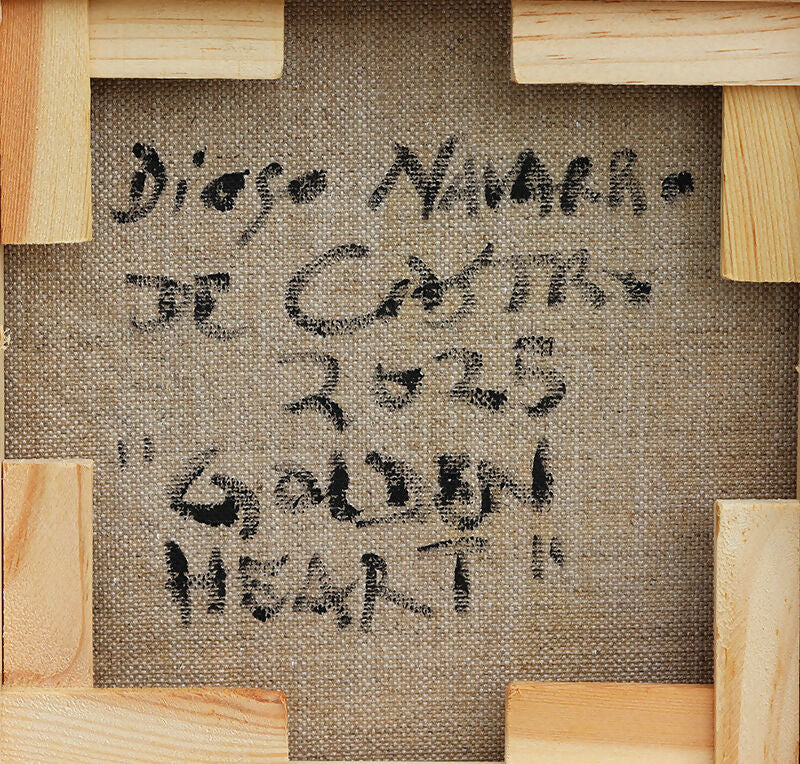 Diego Navarro
DE CASTRO
2025
"GOLDEN
HEART"